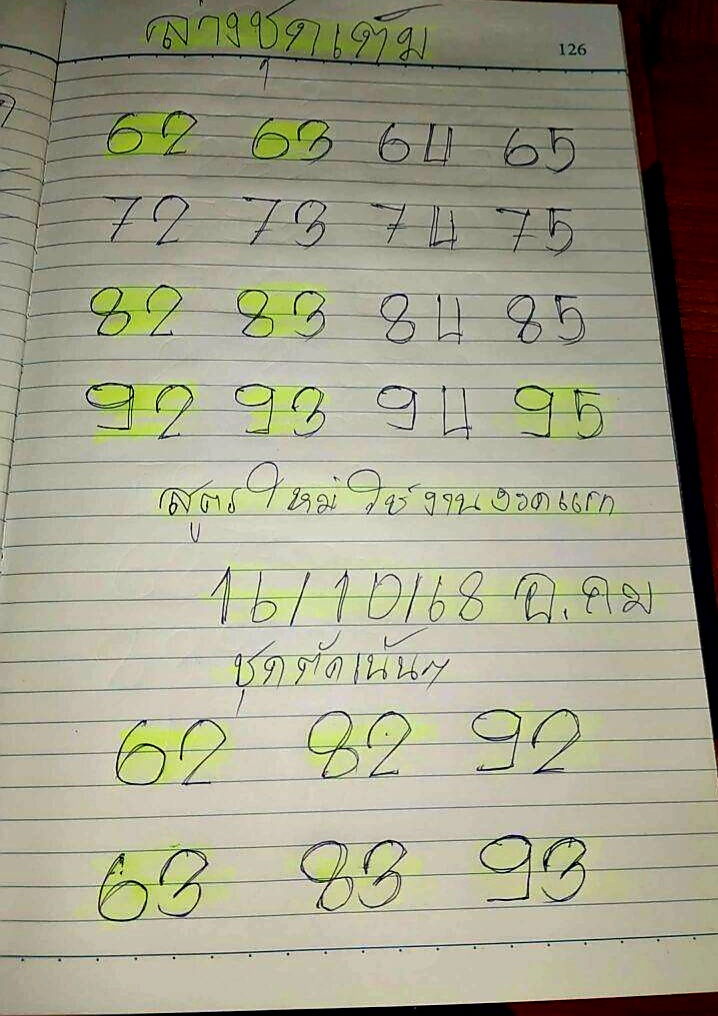 ล่างชุดเต็ม
126
62 63 64 65
72 73 74 75
82 83 84 85
92 93 94 95
สูตรใหม่ ใช้งานงวดแรก
16/10/68 อ.คม
ชุดตัดเน้นๆ
62 82 92
63 83 93